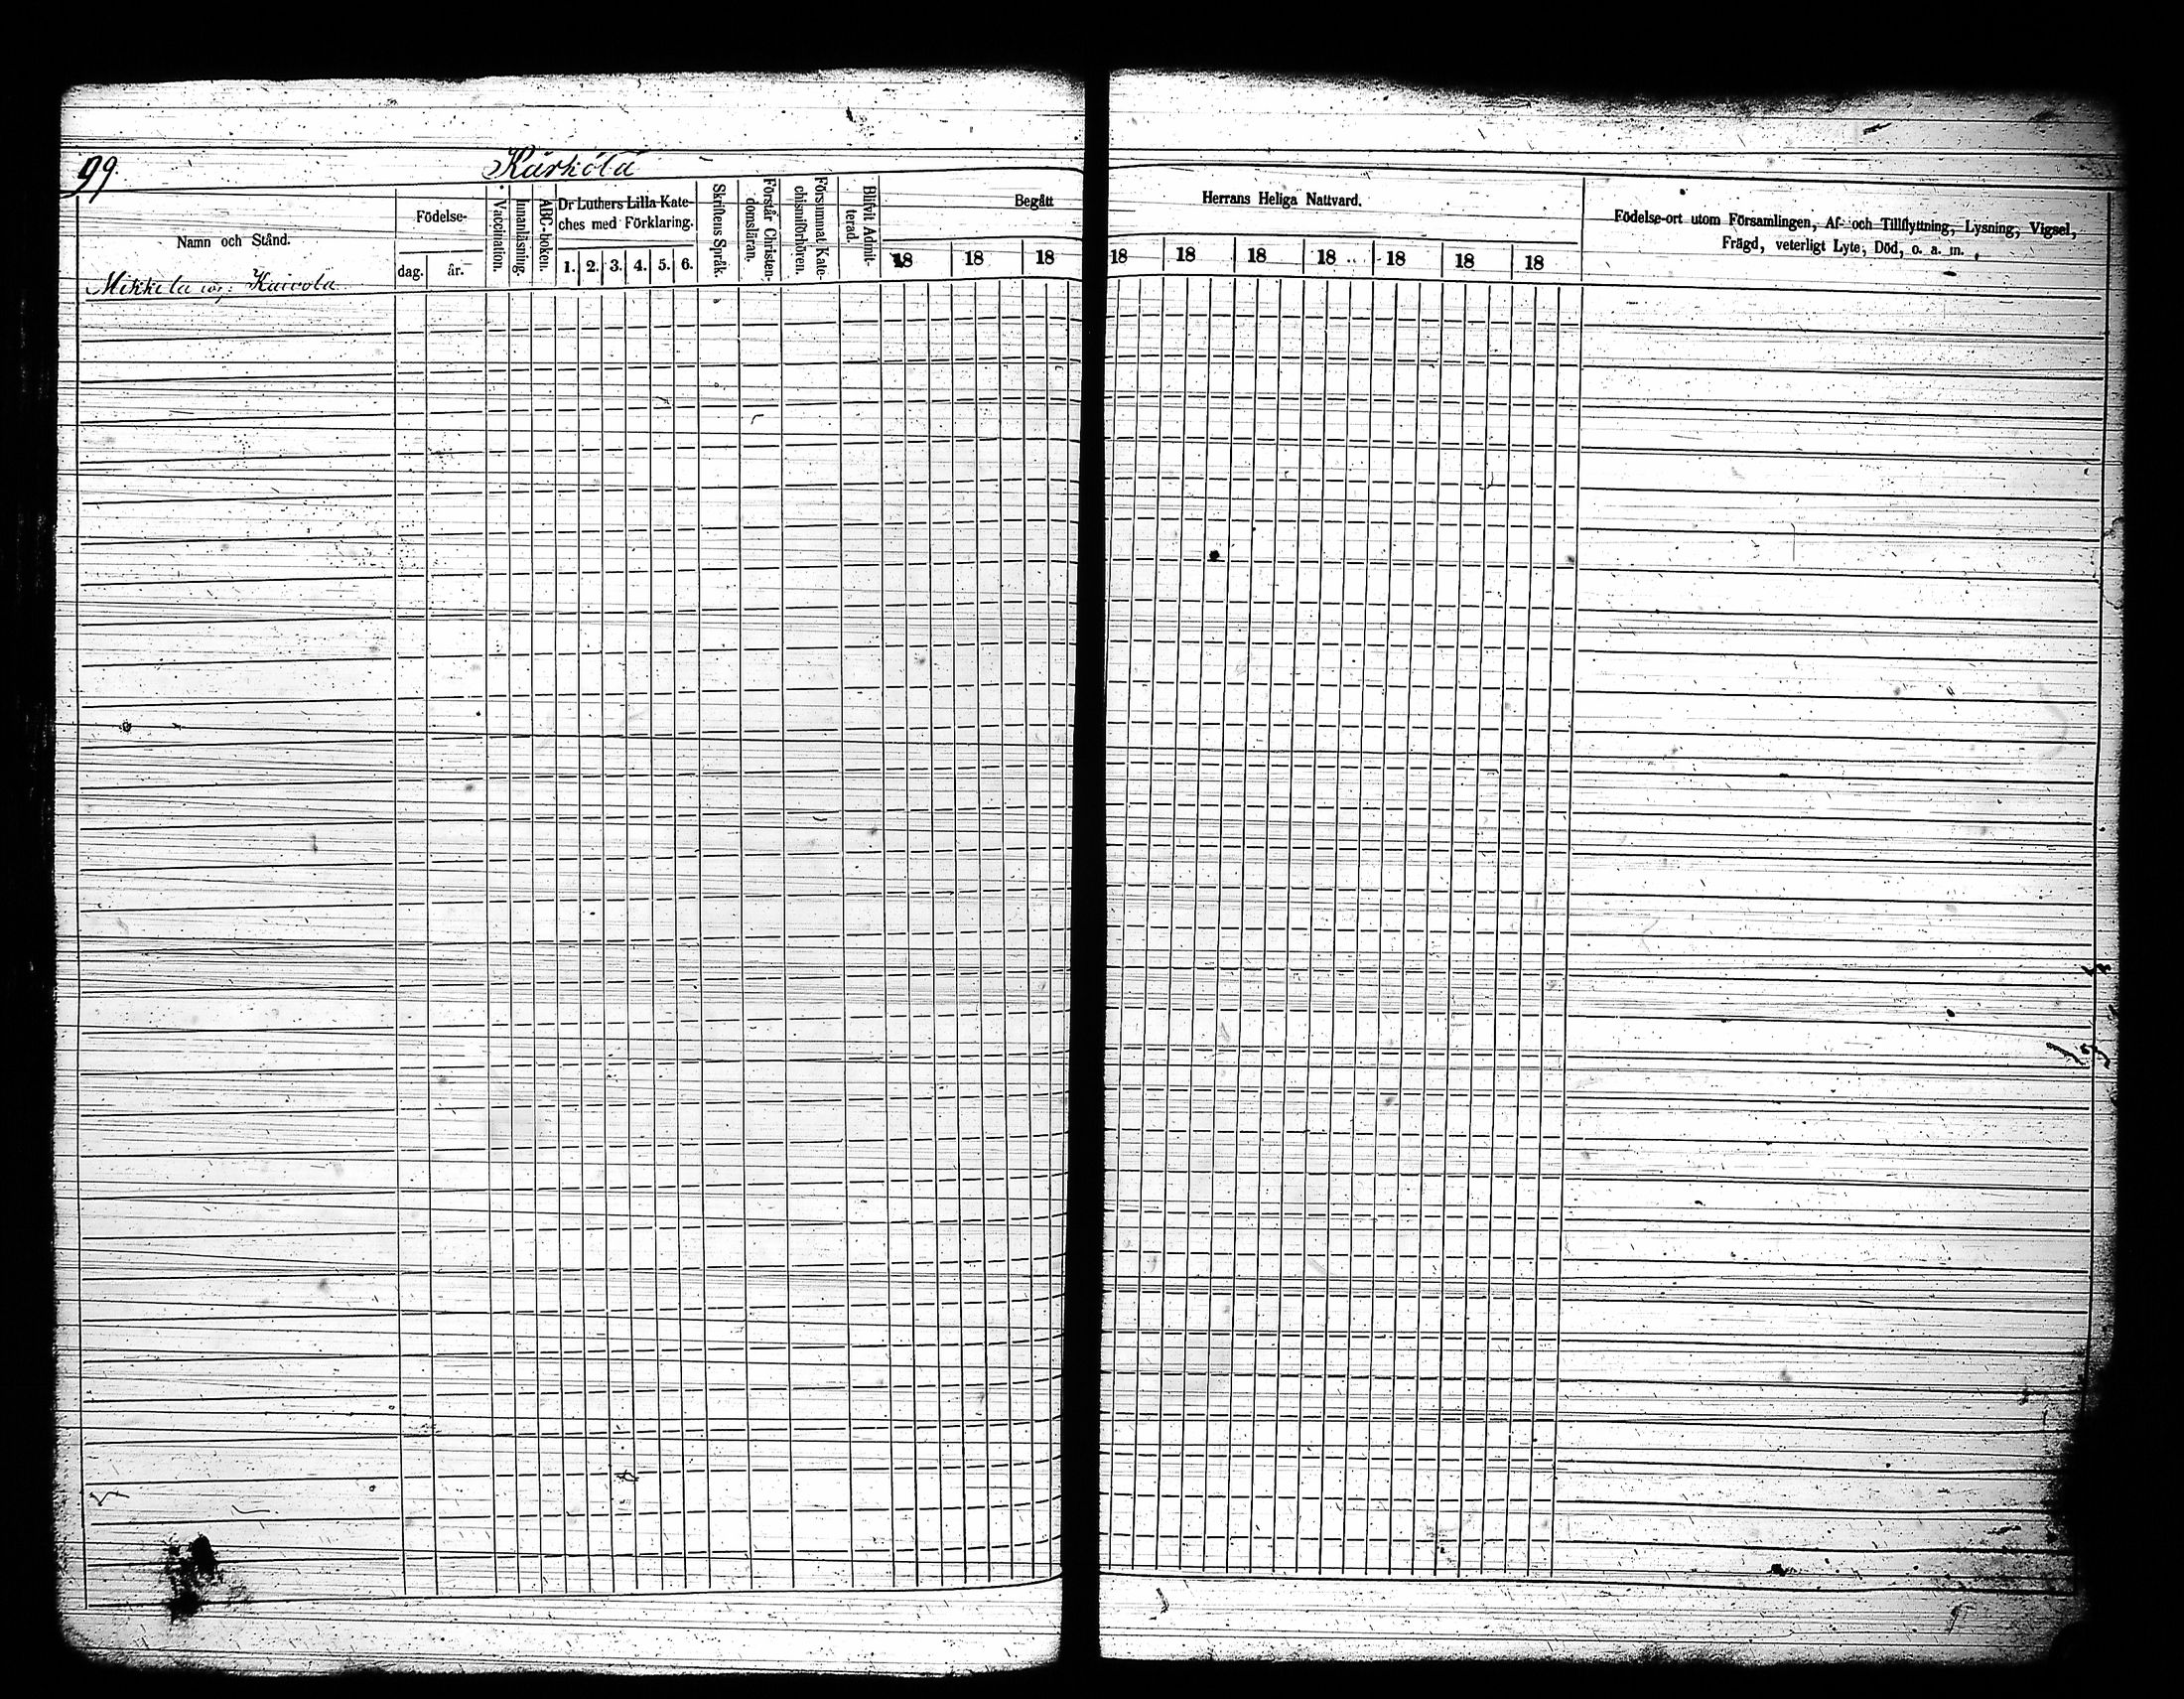 99.
Kärkölä
Namn och Stånd.
Födelse-
dag.
år.
Vaccination.
Innanläsning.
ABC-boken.
Dr Luthers Lilla Kate-
ches med Förklaring.
1. 2. 3. 4. 5. 6.
Skriftens Språk.
Förstår Christen-
domsläran.
Försummat Kate-
chismiförhören.
Blifvit Admit-
terad.
Begått
Herrans Heliga Nattvard.
18 18 18 18 18 18 18 18 18 18
Födelse-ort utom Församlingen, Af- och Tillflyttning, Lysning, Vigsel,
Frägd, veterligt Lyte, Död, o. a. m.
Mikkila